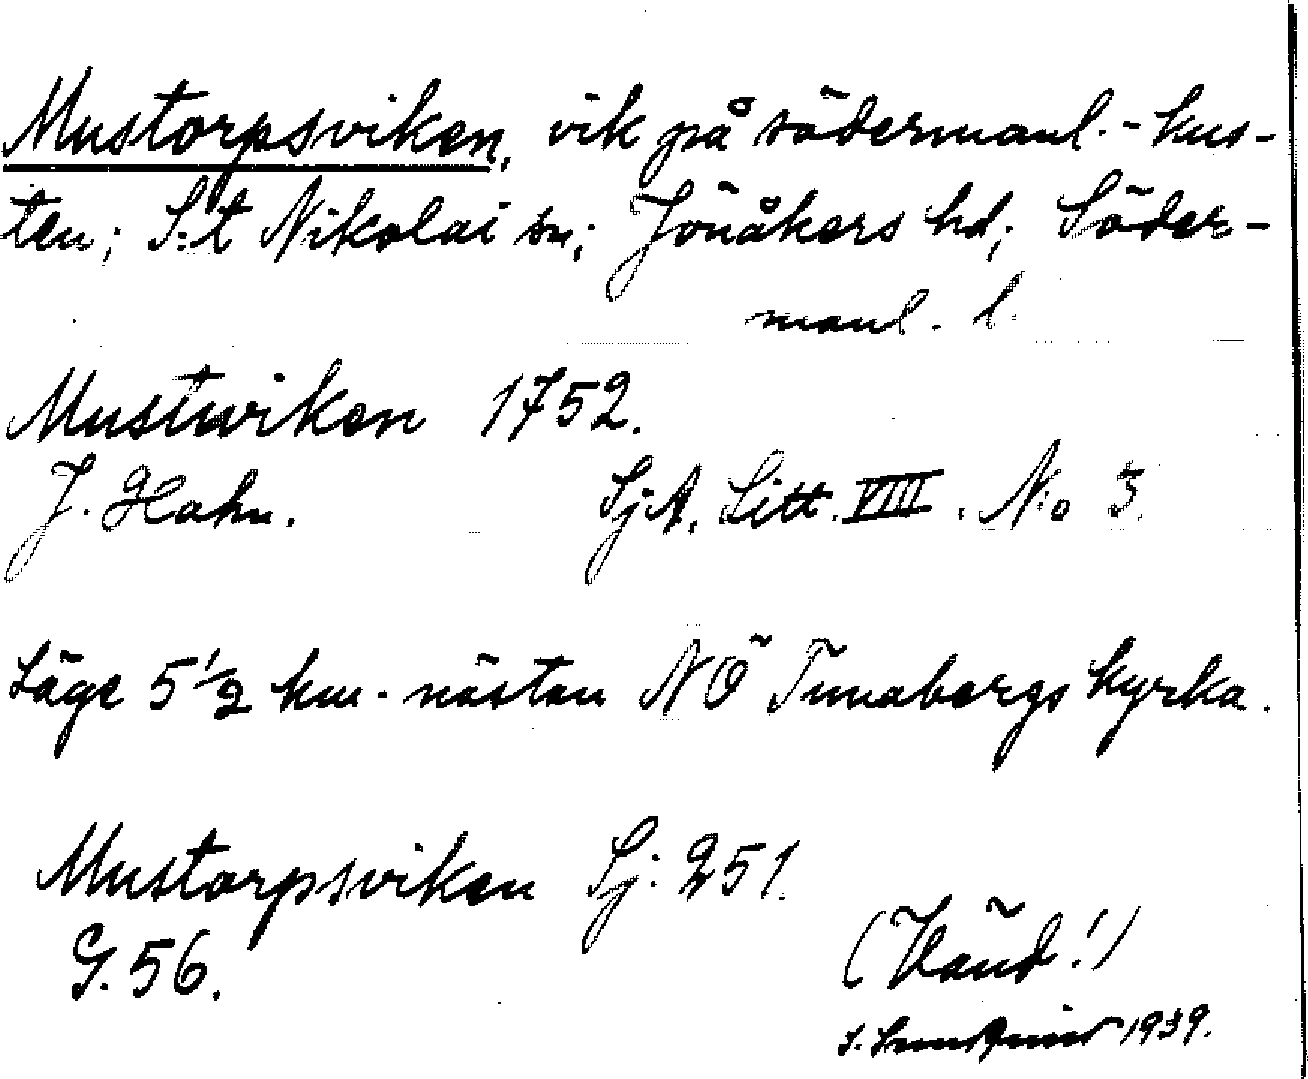 Mustorpsviken, vik på södermanl.-kus-
ten; S:t Nikolai sn; Jönåkers hd; Söder-
manl. l.
Mustwiken 1752.
J. Hahn. SjA. Litt. VIII. No 3.
Läge 5 1/2 km. nästan NÖ Tunabergs kyrka.
Mustorpsviken Sj. 251.
G. 56.
(Vänd!)
S. 1939.